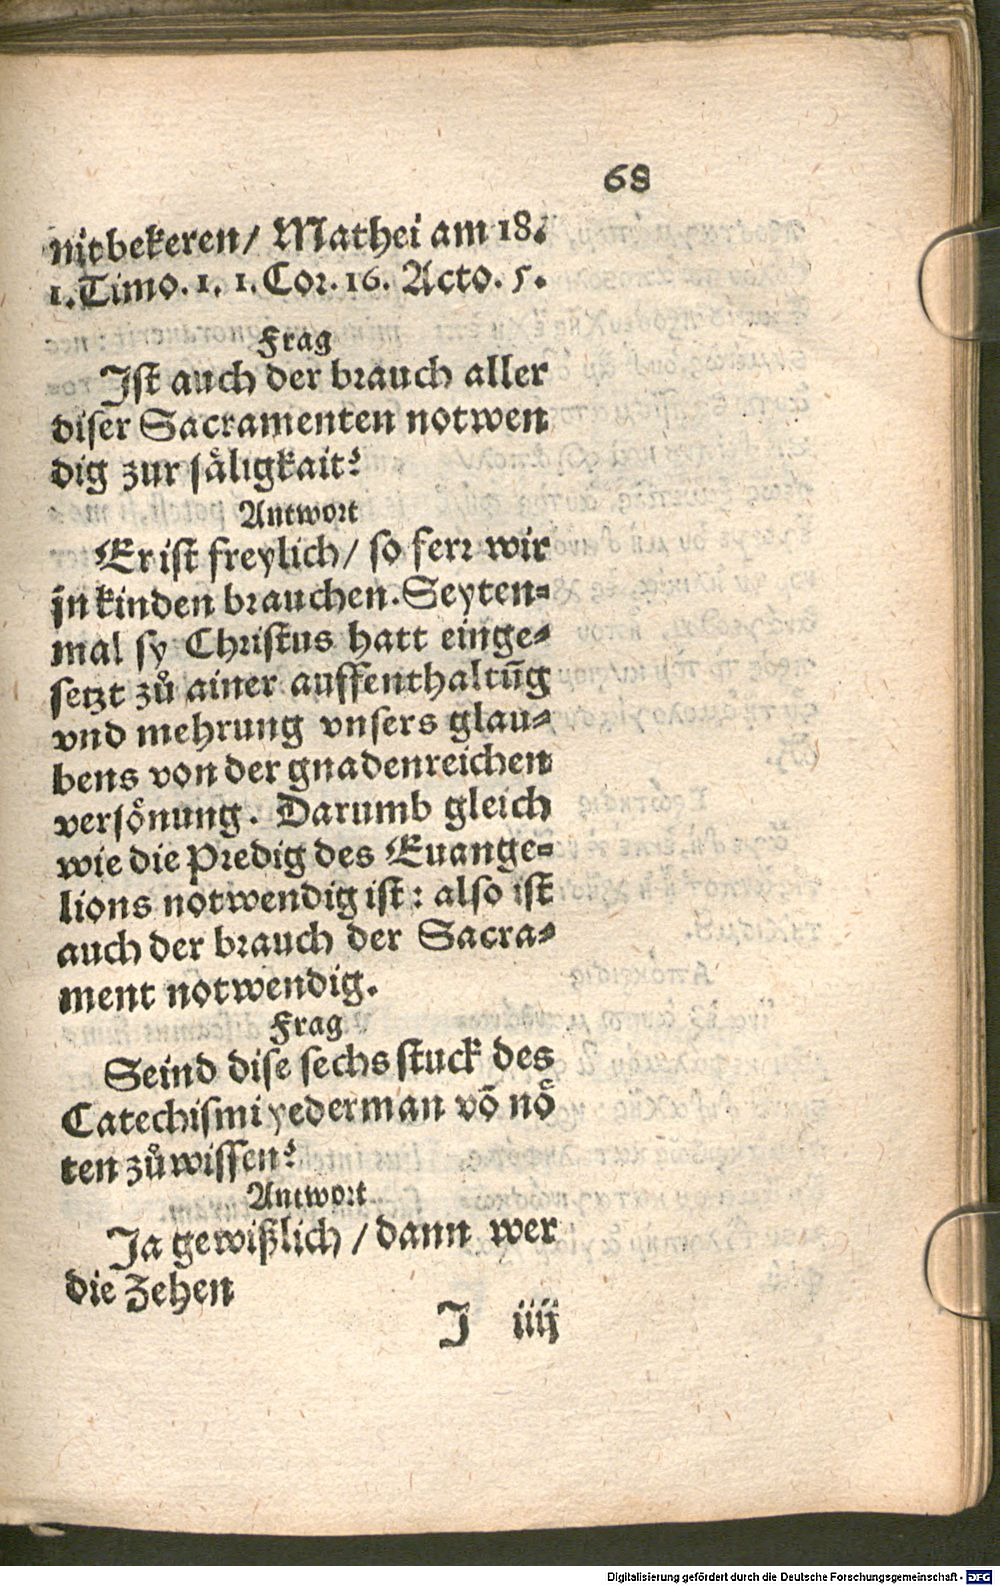 68
nitbekeren/ Mathei am 18.
1. Timo. 1. 1. Cor. 16. Acto. 5.
Frag
Ist auch der brauch aller
diser Sacramenten notwen
dig zur säligkait?
Antwort
Er ist freylich/ so ferr wir
jn kinden brauchen. Seyten-
mal sy Christus hatt einge-
setzt zů ainer auffenthaltūg
vnd mehrung vnsers glau-
bens von der gnadenreichen
versönung. Darumb gleich
wie die Predig des Euange-
lions notwendig ist: also ist
auch der brauch der Sacra-
ment notwendig.
Frag
Seind dise sechs stuck des
Catechismi yederman vō nö
ten zů wissen?
Antwort
Ja gewißlich/ dann wer
die Zehen
J iiij
Digitalisierung gefördert durch die Deutsche Forschungsgemeinschaft - DFG